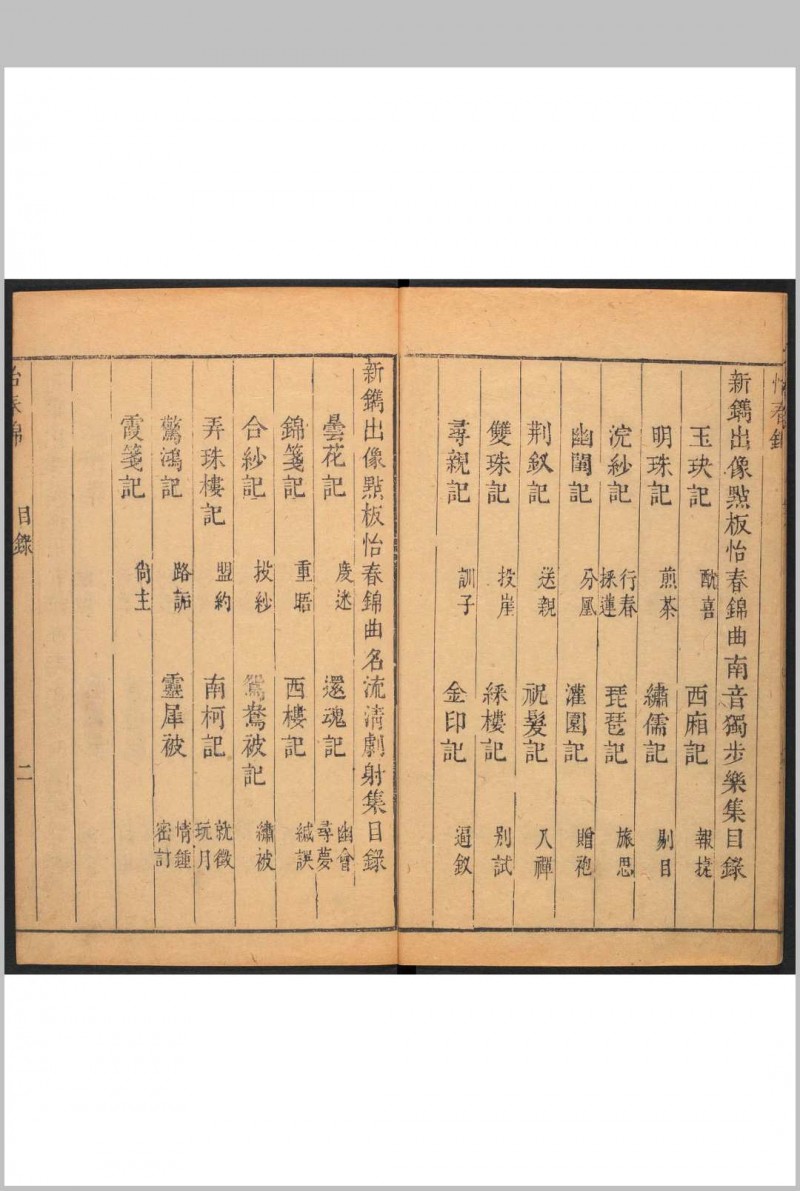 怡春錦
新鐫出像點板怡春錦曲南音獨步樂集目錄
玉玦記 酖喜 西廂記 報捷
明珠記 煎茶 繡儒記 剔目
浣紗記 行春 採蓮 琵琶記 旅思
幽閨記 分凰 灌園記 贈袍
荆釵記 送親 祝髮記 入禪
雙珠記 投崖 綵樓記 別試
尋親記 訓子 金印記 逼釵
新鐫出像點板怡春錦曲名流清劇射集目錄
曇花記 度迷 還魂記 幽會 尋夢
錦箋記 重晤 西樓記 緘誤
合紗記 投紗 鴛鴦被記 繡被
弄珠樓記 盟約 南柯記 就徵 玩月
驚鴻記 路詬 靈犀被 情鍾 密訂
霞箋記 尙主
怡春錦 目錄 二